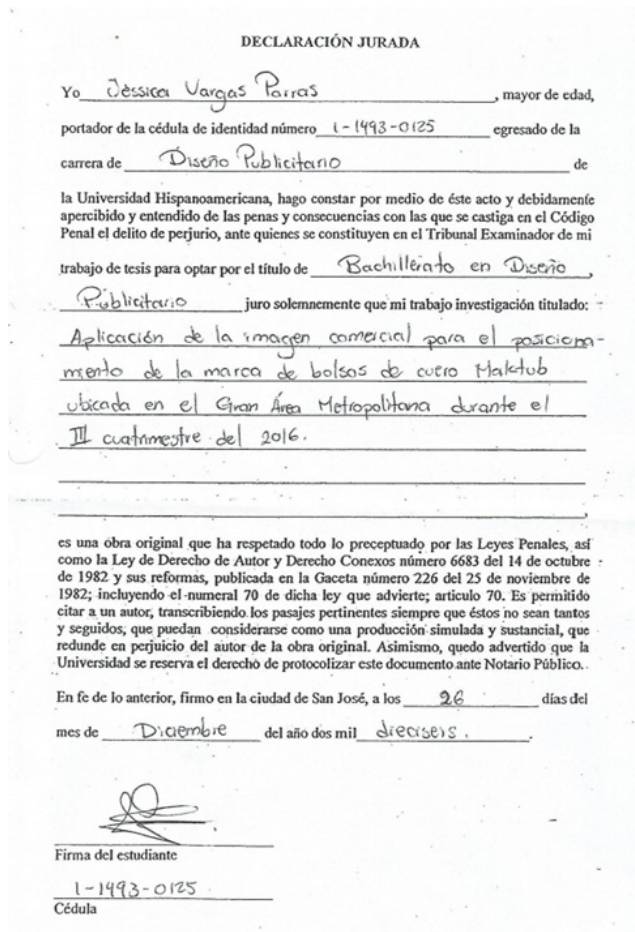 DECLARACIÓN JURADA
Yo Jèssica Vargas Porras, mayor de edad,
portador de la cédula de identidad número 1-1493-0125 egresado de la
carrera de Diseño Publicitario de
la Universidad Hispanoamericana, hago constar por medio de éste acto y debidamente
apercibido y entendido de las penas y consecuencias con las que se castiga en el Código
Penal el delito de perjurio, ante quienes se constituyen en el Tribunal Examinador de mi
trabajo de tesis para optar por el título de Bachillerato en Diseño,
Publicitario juro solemnemente que mi trabajo investigación titulado:
Aplicación de la imagen comercial para el posiciona-
miento de la marca de bolsos de cuero Maktub
ubicada en el Gran Área Metropolitana durante el
III cuatrimestre del 2016.
,
es una obra original que ha respetado todo lo preceptuado por las Leyes Penales, así
como la Ley de Derecho de Autor y Derecho Conexos número 6683 del 14 de octubre
de 1982 y sus reformas, publicada en la Gaceta número 226 del 25 de noviembre de
1982; incluyendo el numeral 70 de dicha ley que advierte; articulo 70. Es permitido
citar a un autor, transcribiendo los pasajes pertinentes siempre que éstos no sean tantos
y seguidos, que puedan considerarse como una producción simulada y sustancial, que
redunde en perjuicio del autor de la obra original. Asimismo, quedo advertido que la
Universidad se reserva el derecho de protocolizar este documento ante Notario Público.
En fe de lo anterior, firmo en la ciudad de San José, a los 26 días del
mes de Diciembre del año dos mil dieciseis.
Firma del estudiante
1-1493-0125
Cédula